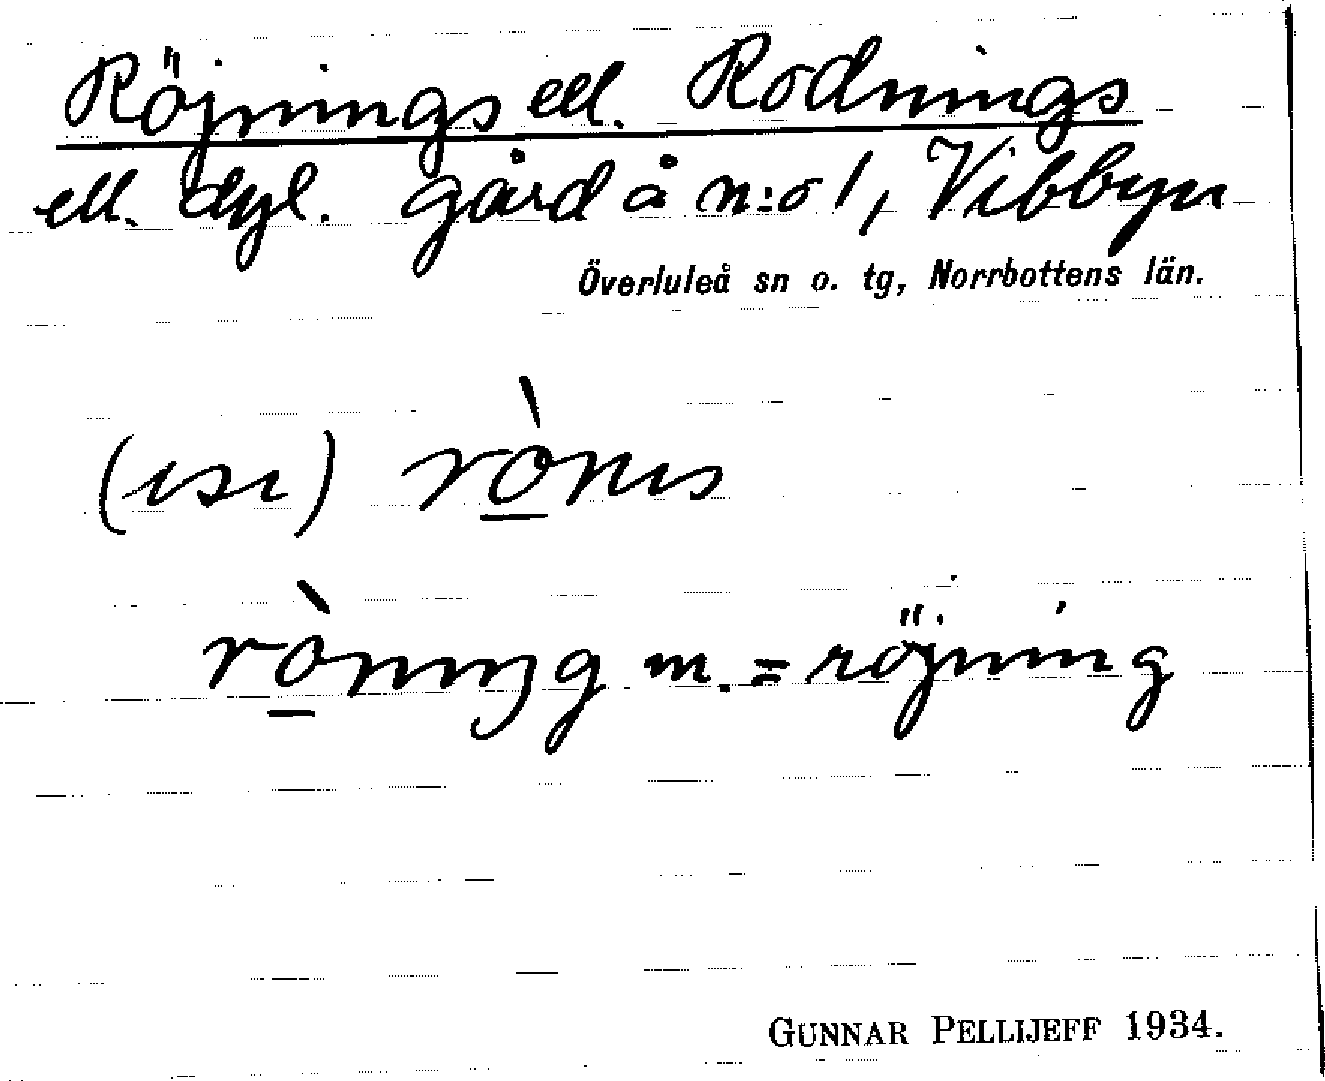 Röjnings ell. Rodnings
ell. dyl. gård å n:o 1, Vibbyn
Överluleå sn o. tg, Norrbottens län.
(ɩsɩ) rò̱nɩs
rò̱nɩŋg m. = röjning
GUNNAR PELLIJEFF 1934.